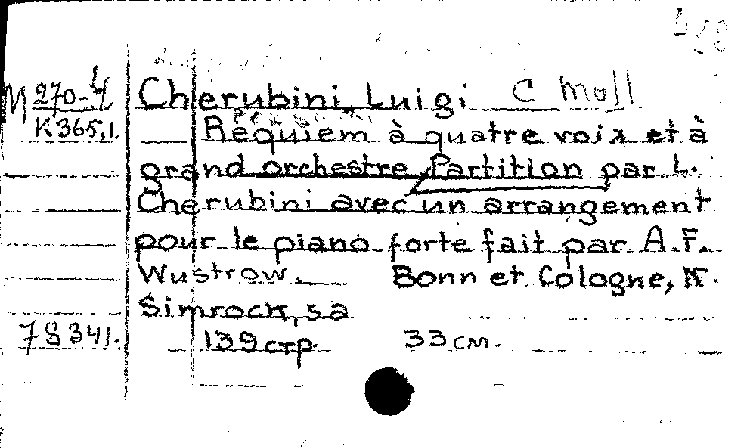 M 270-4 Cherubini, Luigi C moll
K 365,1. Requiem à quatre voix et à
grand orchestre Partition par L.
Cherubini avec un arrangement
pour le piano forte fait par A.F.
Wustrow. Bonn et Cologne, N.
Simrock, s a
78341. 139 стр. 33 см.